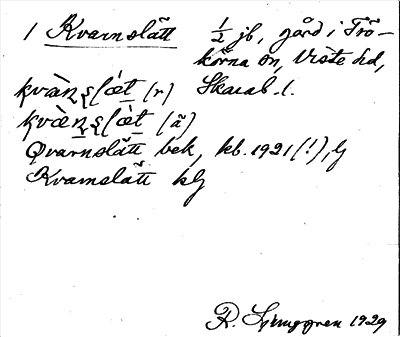 1 Kvarnslätt ½ jb, gård i Trö-
körna sn, Viste hd,
Skarab. l.
kvàn̠ʂlæ̀t (r)
kvæ̀n̠ʂlæ̀t (ä)
Qvarnslätt bek, kb. 1921 (!), ly
Kvarnslätt kly
R. Ljunggren 1929